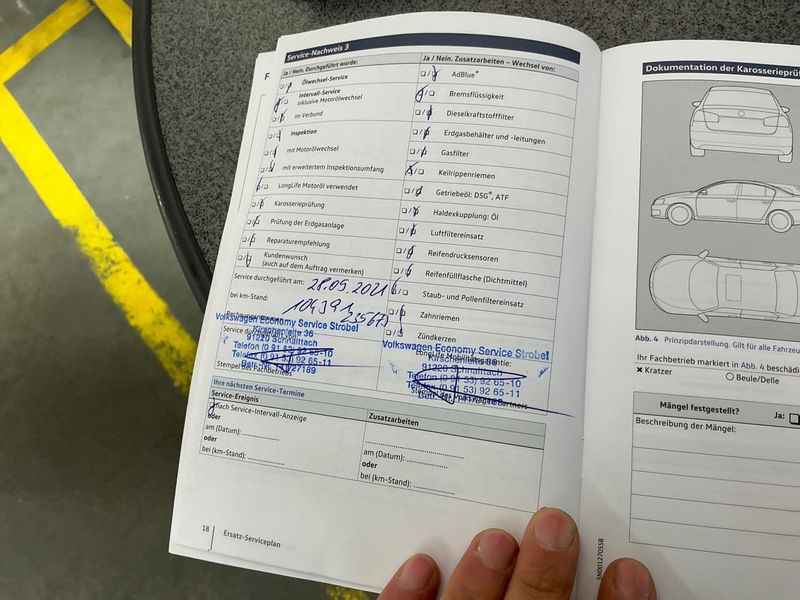 Service-Nachweis 3
Ja / Nein. Durchgeführt wurde:
Ölwechsel-Service
Intervall-Service
inklusive Motorölwechsel
im Verbund
Inspektion
mit Motorölwechsel
mit erweitertem Inspektionsumfang
LongLife Motoröl verwendet
Karosserieprüfung
Prüfung der Erdgasanlage
Reparaturempfehlung
Kundenwunsch
(auch auf dem Auftrag vermerken)
Service durchgeführt am: 28.09.2021
bei km-Stand: 104391
Volkswagen Economy Service Strobel
Kirschenleite 36
91220 Schnaittach
Telefon (0 91 53) 92 65-10
Telefax (0 91 53) 92 65-11
Stempel des Fachbetriebs
Ja / Nein. Zusatzarbeiten – Wechsel von:
AdBlue®
Bremsflüssigkeit
Dieselkraftstofffilter
Erdgasbehälter und -leitungen
Gasfilter
Keilrippenriemen
Getriebeöl: DSG®, ATF
Haldexkupplung: Öl
Luftfiltereinsatz
Reifendrucksensoren
Reifenfüllflasche (Dichtmittel)
Staub- und Pollenfiltereinsatz
Zahnriemen
Zündkerzen
Volkswagen Economy Service Strobel
Kirschenleite 36
91220 Schnaittach
Telefon (0 91 53) 92 65-10
Telefax (0 91 53) 92 65-11
Ihre nächsten Service-Termine
Service-Ereignis
nach Service-Intervall-Anzeige
oder
am (Datum): ................
oder
bei (km-Stand): ................
Zusatzarbeiten
am (Datum): ................
oder
bei (km-Stand): ................
18
Ersatz-Serviceplan
Dokumentation der Karosserieprüf
Abb. 4 Prinzipdarstellung. Gilt für alle Fahrzeu
Ihr Fachbetrieb markiert in Abb. 4 beschädigte
Kratzer
Beule/Delle
Mängel festgestellt?
Ja:
Beschreibung der Mängel: